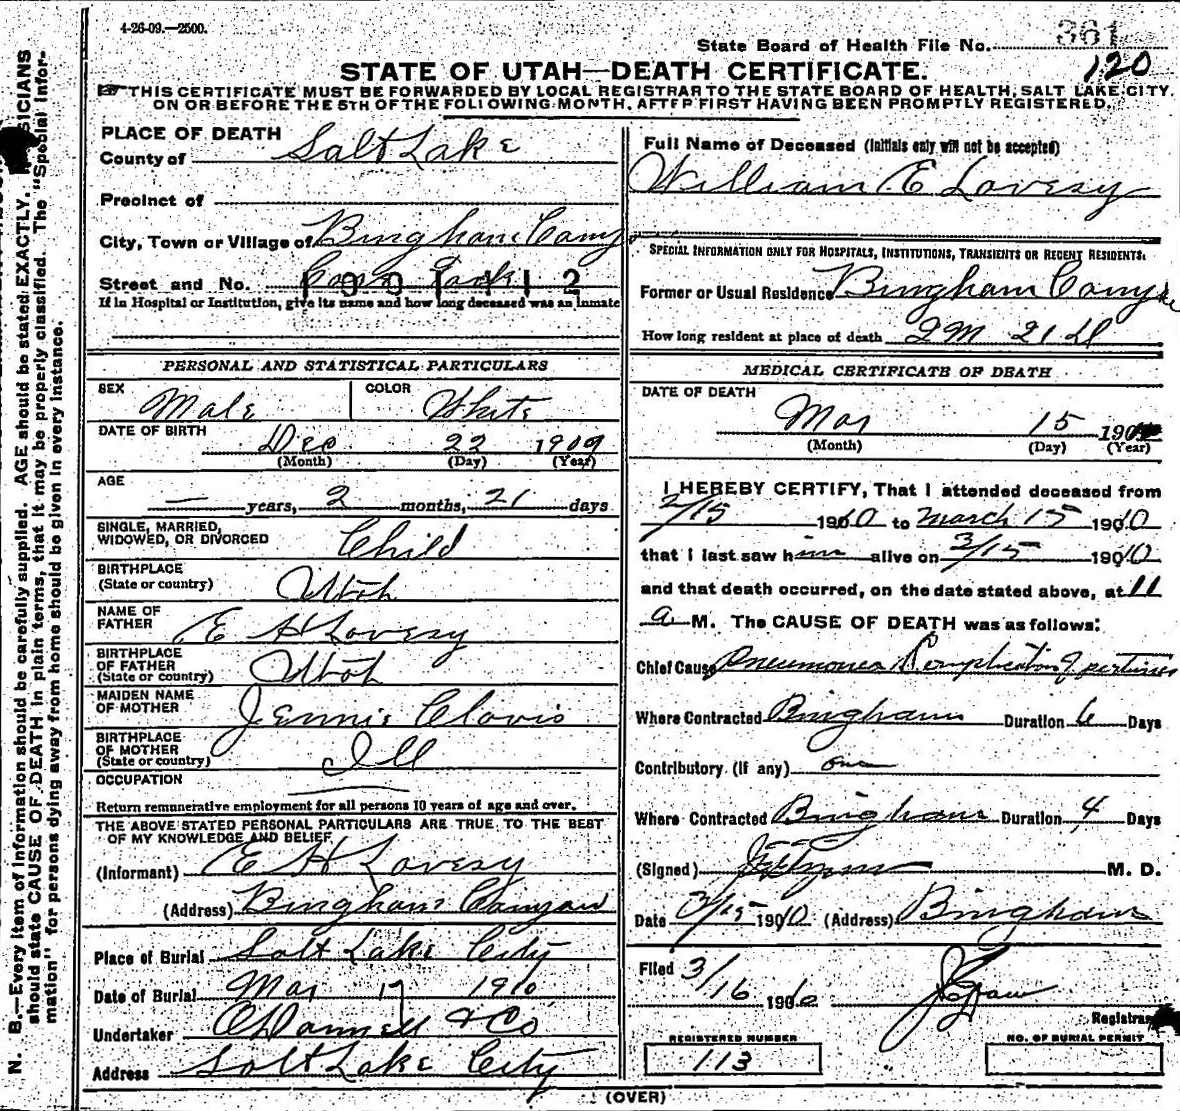 4-26-09.—2500.
361
State Board of Health File No.
120
STATE OF UTAH—DEATH CERTIFICATE.
THIS CERTIFICATE MUST BE FORWARDED BY LOCAL REGISTRAR TO THE STATE BOARD OF HEALTH, SALT LAKE CITY.
ON OR BEFORE THE 5TH OF THE FOLLOWING MONTH, AFTER FIRST HAVING BEEN PROMPTLY REGISTERED.
PLACE OF DEATH
County of Salt Lake
Precinct of
City, Town or Village of Bingham Cany
Street and No.
If in Hospital or Institution, give its name and how long deceased was an inmate
PERSONAL AND STATISTICAL PARTICULARS
SEX Male COLOR White
DATE OF BIRTH Dec 22 1909
(Month) (Day) (Year)
AGE
— years, 2 months, 21 days
SINGLE, MARRIED,
WIDOWED, OR DIVORCED Child
BIRTHPLACE
(State or country) Utah
NAME OF
FATHER E H Lovesy
BIRTHPLACE
OF FATHER
(State or country) Utah
MAIDEN NAME
OF MOTHER Jennie Clovis
BIRTHPLACE
OF MOTHER
(State or country) Ill
OCCUPATION
Return remunerative employment for all persons 10 years of age and over.
THE ABOVE STATED PERSONAL PARTICULARS ARE TRUE TO THE BEST
OF MY KNOWLEDGE AND BELIEF
(Informant) E H Lovesy
(Address) Bingham Canyon
Place of Burial Salt Lake City
Date of Burial Mar 17 1910
Undertaker O'Donnell & Co
Address Salt Lake City
Full Name of Deceased (Initials only will not be accepted)
William E Lovesy
SPECIAL INFORMATION ONLY FOR HOSPITALS, INSTITUTIONS, TRANSIENTS OR RECENT RESIDENTS.
Former or Usual Residence Bingham Canyon
How long resident at place of death 2M 21 d
MEDICAL CERTIFICATE OF DEATH
DATE OF DEATH
Mar 15 190
(Month) (Day) (Year)
I HEREBY CERTIFY, That I attended deceased from
2/15 1910 to March 15 1910
that I last saw him alive on 3/15 1910
and that death occurred, on the date stated above, at 11
a M. The CAUSE OF DEATH was as follows:
Chief Cause Pneumonia Complication of pertussis
Where Contracted Bingham Duration 6 Days
Contributory (if any)
Where Contracted Bingham Duration 4 Days
(Signed) M. D.
Date 3/15 1910 (Address) Bingham
Filed 3/16 1910
Registrar
REGISTERED NUMBER
113
NO. OF BURIAL PERMIT
(OVER)
N. B.—Every item of information should be carefully supplied. AGE should be stated EXACTLY. PHYSICIANS
should state CAUSE OF DEATH in plain terms, that it may be properly classified. The "Special Infor-
mation" for persons dying away from home should be given in every instance.